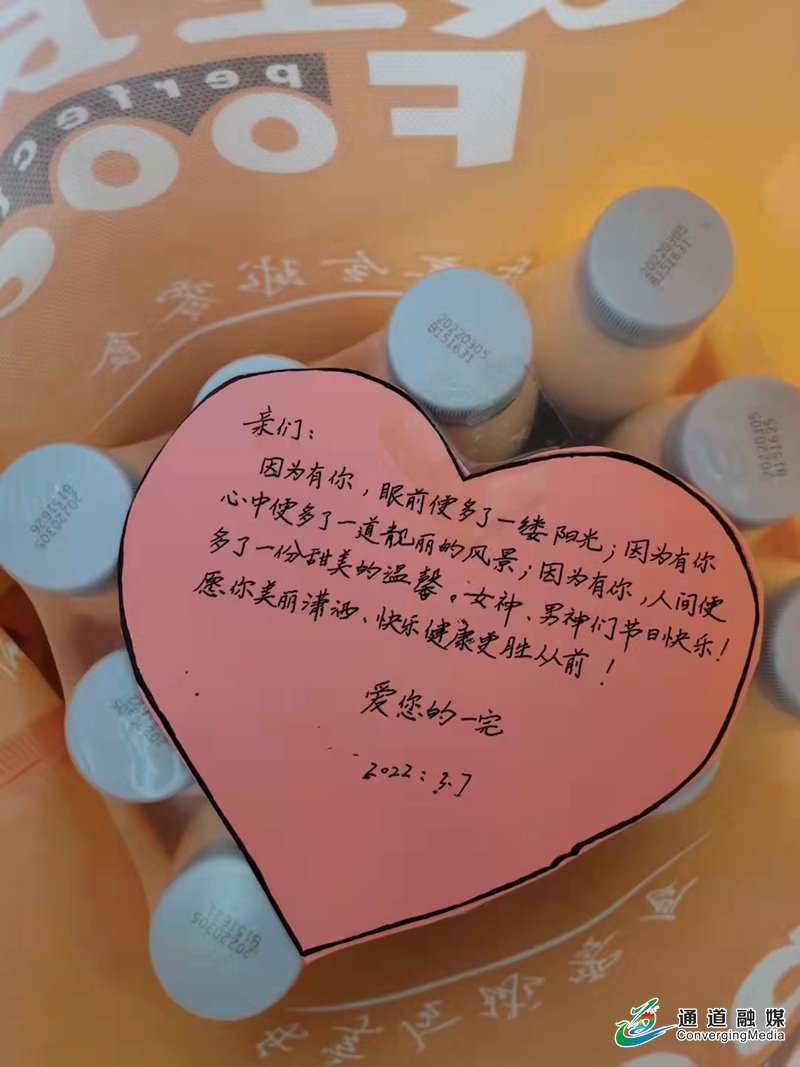 FOO
perfec
20220305
B151631
20220305
B151631
20220305
B151625
20220305
B151626
亲们：
因为有你，眼前便多了一缕阳光；因为有你
心中便多了一道靓丽的风景；因为有你，人间便
多了一份甜美的温馨。女神、男神们节日快乐！
愿你美丽潇洒、快乐健康更胜从前！
爱您的一完
2022：3.7
20220305
B151621
通道融媒
ConvergingMedia